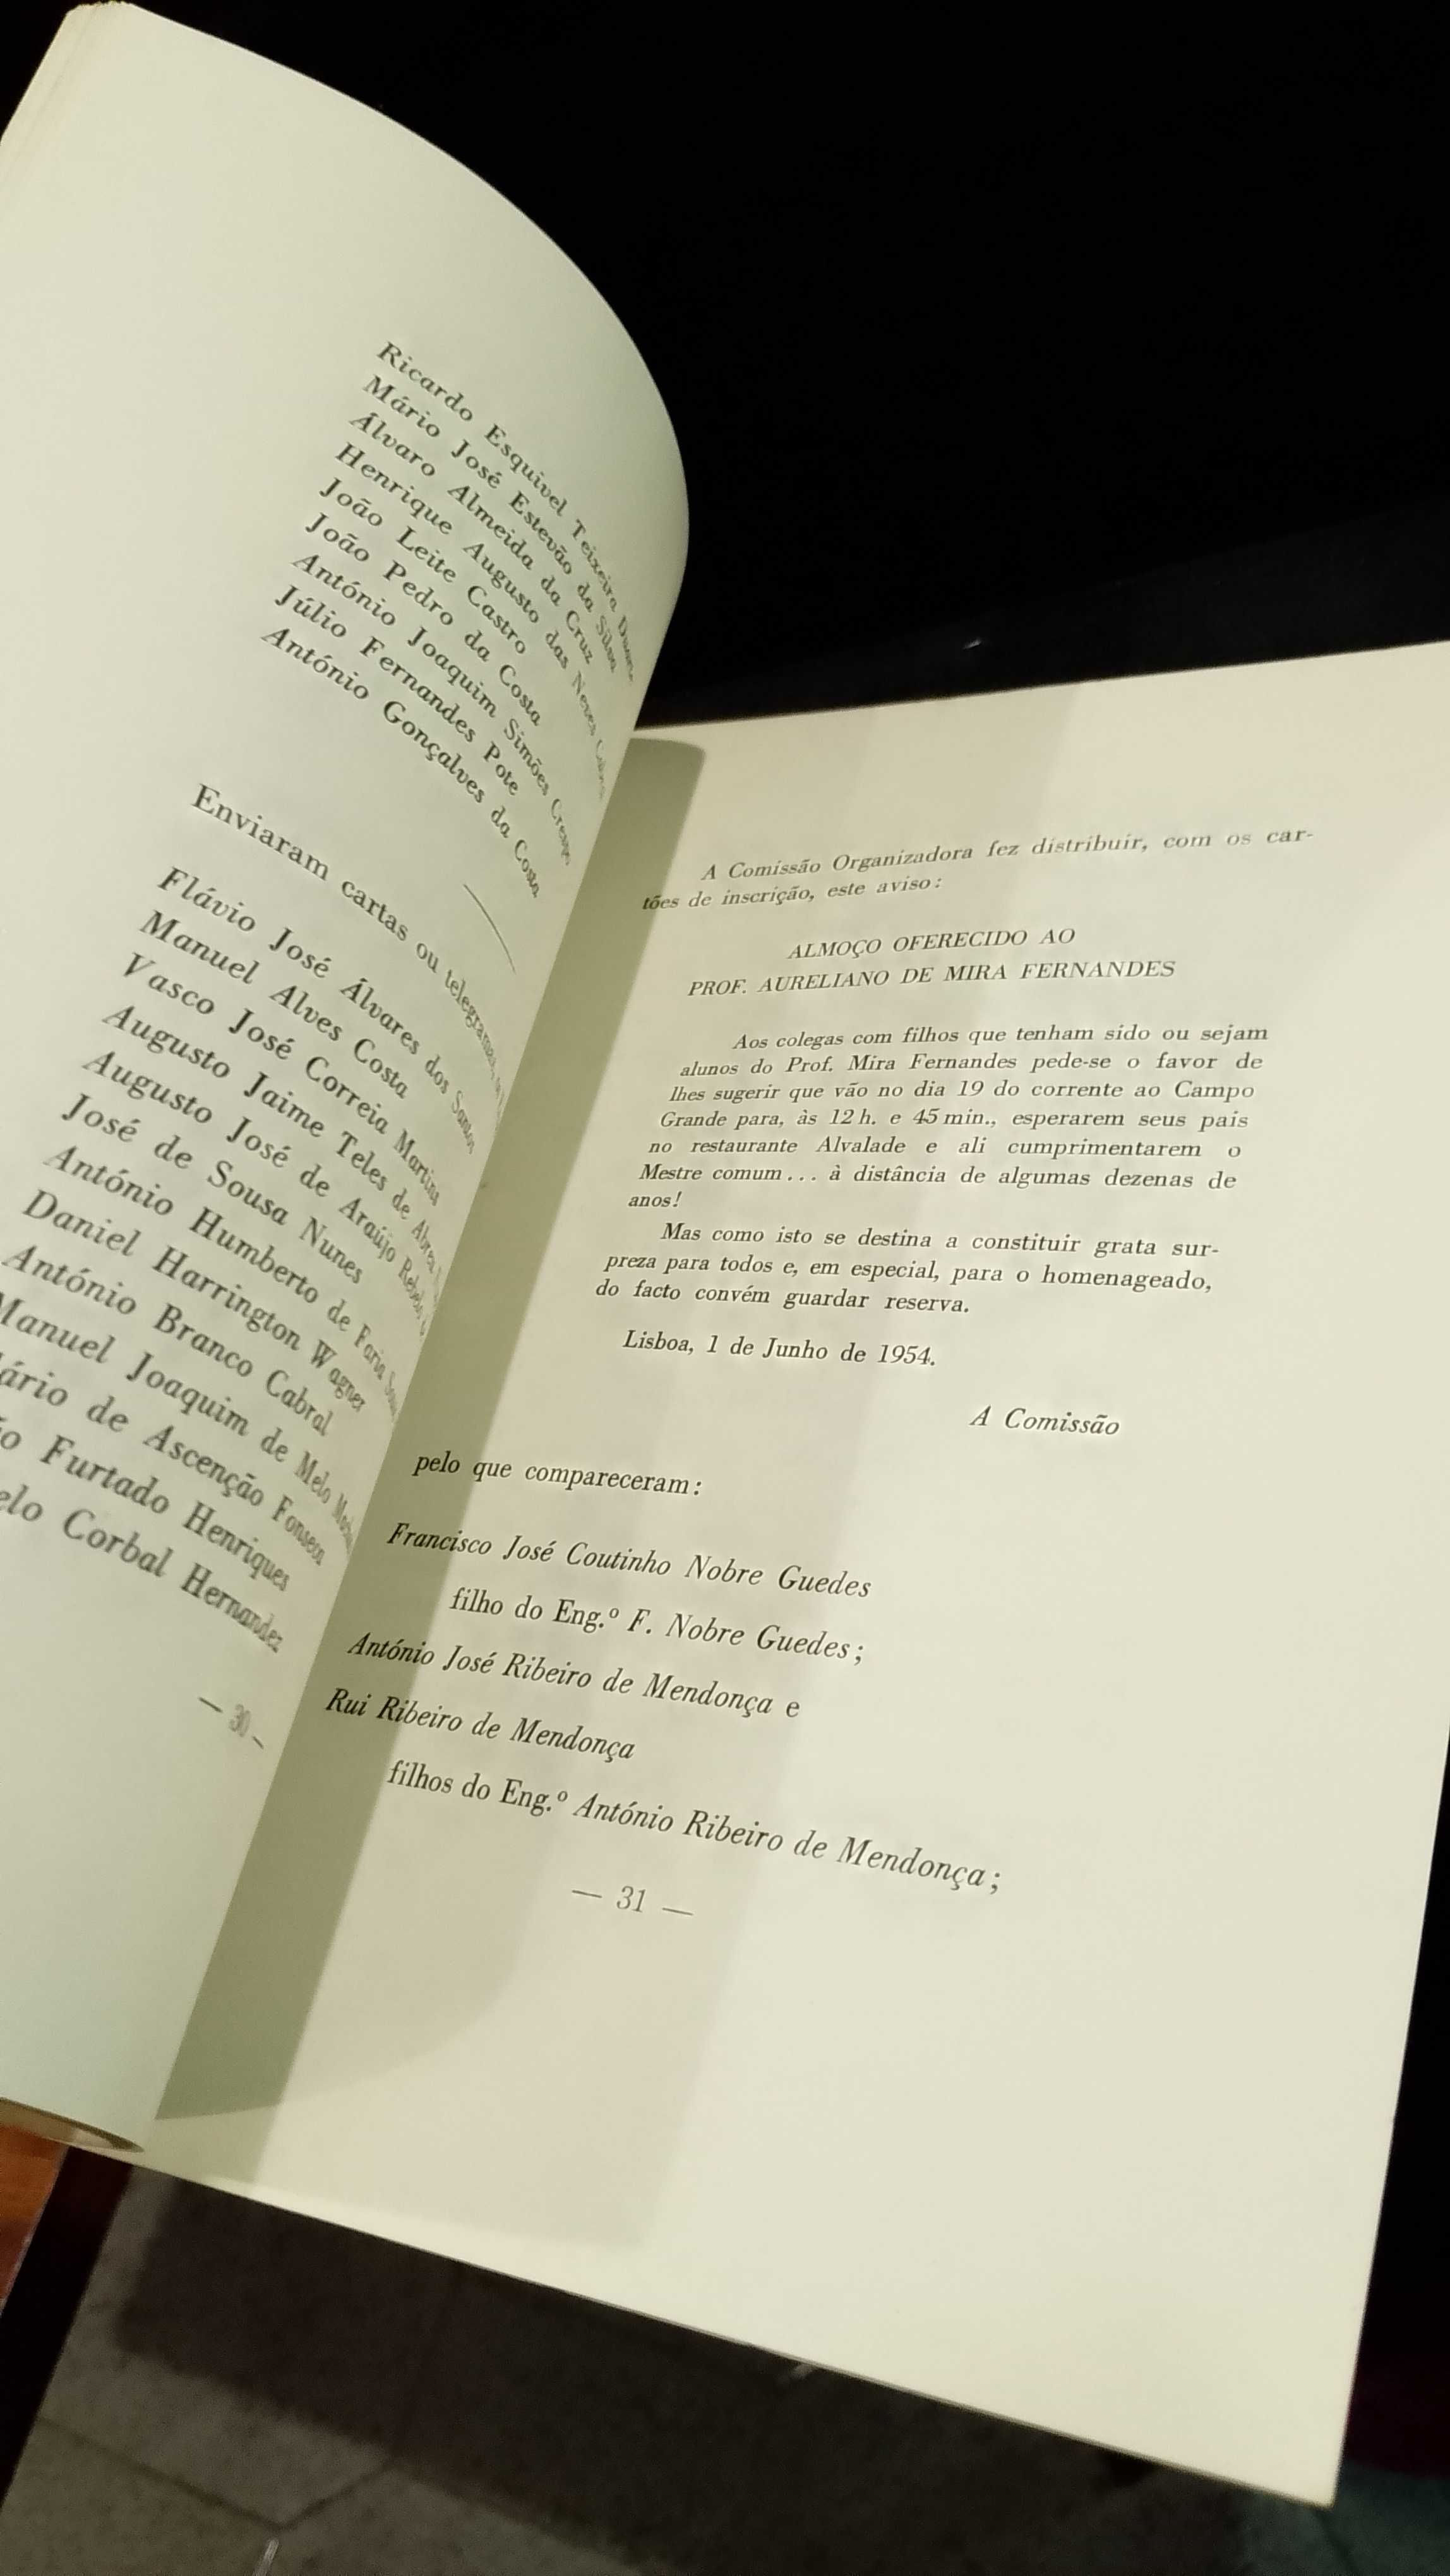 Ricardo Esquivel Teixeira Duarte
Mário José Estevão da Silva
Álvaro Almeida da Cruz
Henrique Augusto das Neves
João Leite Castro
João Pedro da Costa
António Joaquim Simões Crespo
Júlio Fernandes Pote
António Gonçalves da Costa
Enviaram cartas ou telegramas
Flávio José Álvares dos Santos
Manuel Alves Costa
Vasco José Correia Martins
Augusto Jaime Teles de Abreu
Augusto José de Araújo
José de Sousa Nunes
António Humberto de Faria
Daniel Harrington Wagner
António Branco Cabral
Manuel Joaquim de Melo
de Ascenção Fonseca
Furtado Henriques
Corbal Hernandez
— 30 —
A Comissão Organizadora fez distribuir, com os car-
tões de inscrição, este aviso:
ALMOÇO OFERECIDO AO
PROF. AURELIANO DE MIRA FERNANDES
Aos colegas com filhos que tenham sido ou sejam
alunos do Prof. Mira Fernandes pede-se o favor de
lhes sugerir que vão no dia 19 do corrente ao Campo
Grande para, às 12 h. e 45 min., esperarem seus pais
no restaurante Alvalade e ali cumprimentarem o
Mestre comum... à distância de algumas dezenas de
anos!
Mas como isto se destina a constituir grata sur-
preza para todos e, em especial, para o homenageado,
do facto convém guardar reserva.
Lisboa, 1 de Junho de 1954.
A Comissão
pelo que compareceram:
Francisco José Coutinho Nobre Guedes
filho do Eng.º F. Nobre Guedes;
António José Ribeiro de Mendonça e
Rui Ribeiro de Mendonça
filhos do Eng.º António Ribeiro de Mendonça;
— 31 —